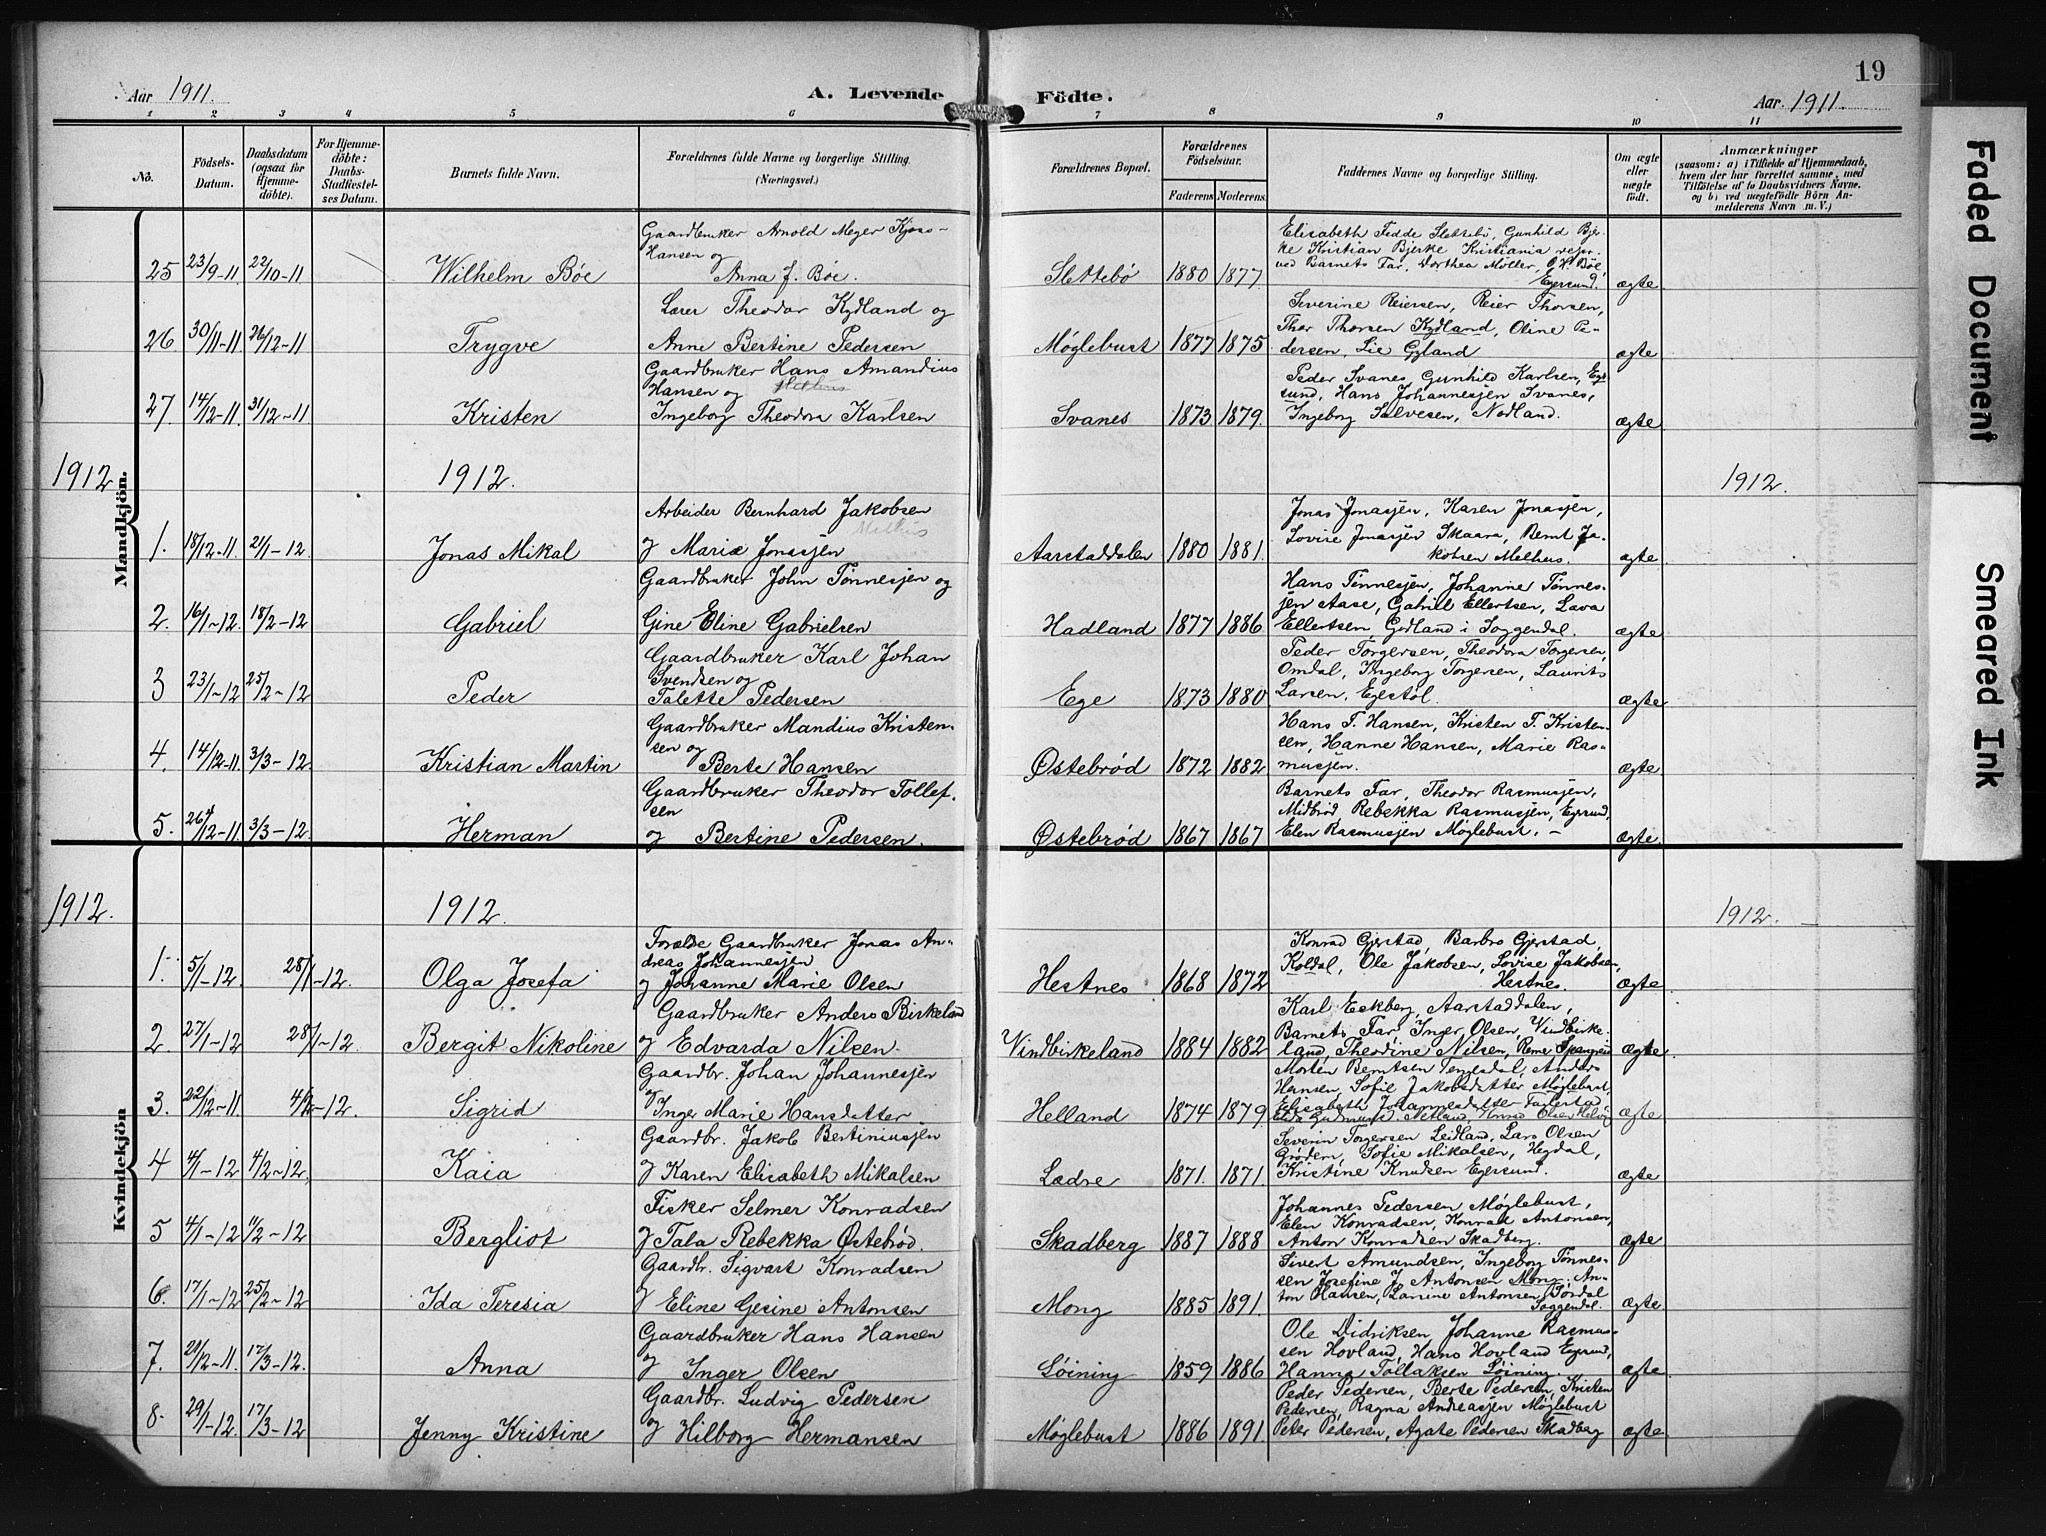 19
Aar 1911. A. Levende Födte. Aar. 1911.
1 2 3 4 5 6 7 8 9 10 11
No. Födsels-Datum. Daabsdatum (ogsaa for Hjemmedöbte). For Hjemmedöbte: Daabs-Stadfæstelses Datum. Barnets fulde Navn. Forældrenes fulde Navne og borgerlige Stilling. (Næringsvei.) Forældrenes Bopæl. Forældrenes Födselsaar. Faderens Moderens Faddernes Navne og borgerlige Stilling. Om ægte eller uægte födt. Anmærkninger (saasom: a) i Tilfælde af Hjemmedaab, hvem der har forrettet samme, med Tilföielse af to Daabsvidners Navne, og b) ved uægtefödte Börn Anmelderens Navn m. V.)
Mandkjön.
25 23/9-11 22/10-11 Wilhelm Bøe Gaardbruker Arnold Meyer Kjoss-
Hansen og
Anna J. Bøe. Slettebø 1880 1877 Elisabeth Fedde Slettebø, Gunhild Bjer-
ke Kristian Bjerke Kristiania repr.
ved Barnets Far, Dorthea Møller, O. H. Bøe,
Egersund. ægte
26 30/11-11 26/12-11 Trygve Lærer Theodor Kydland og
Anne Bertine Pedersen Møglebust 1877 1875 Severine Reiersen, Reier Thorsen,
Thor Thorsen Kydland, Oline Pe-
dersen, Lie Gyland ægte
27. 14/12-11 31/12-11 Kristen Gaardbruker Hans Amandius
Hansen og
Ingeborg Theodora Karlsen Svanes 1873 1879. Peder Svanes Gunhild Karlsen, Eger
sund, Hans Johannesjen Svanes,
Ingeborg Salvesen, Nodland. ægte
1912 1912. 1912.
1. 18/12-11. 21/1-12. Jonas Mikal Arbeider Bernhard Jakobsen
Melhus
og Marie Jonasjen Aarstaddalen 1880 1881. Jonas Jonasjen, Karen Jonasjen,
Lovise Jonasjen Skaara, Bernt Ja-
kobsen Melhus. ægte
2. 16/1-12. 18/2-12 Gabriel Gaardbruker John Tønnesjen og
Gine Eline Gabrielsen Hadland 1877 1886 Hans Tønnesjen, Johanne Tønnes-
jen Aase, Gabriel Ellertsen, Lava
Ellertsen Godland i Soggendal. ægte
3 23/1-12 25/2-12 Peder Gaardbruker Karl Johan
Svendsen og
Talette Pedersen Ege 1873 1880 Peder Torgersen, Theodora Torgersen,
Omdal, Ingeborg Torgersen, Laurits
Larsen, Egestøl. ægte
4. 14/12-11. 3/3-12. Kristian Martin Gaardbruker Mandius Kristen-
sen og
Berte Hansen Østebrød 1872 1882 Hans T. Hansen, Kristen T. Kristen-
sen, Hanne Hansen, Marie Ras-
musjen. ægte
5. 26/12-11. 3/3-12. Herman Gaardbruker Theodor Tollef-
sen
og Bertine Pedersen. Østebrød 1867 1867 Barnets Far, Theodor Rasmusjen,
Midbrød Rebekka Rasmusjen, Egersund,
Elen Rasmusjen Møglebust. - ægte.
Kvindekjön
1912. 1912. 1912.
1. 5/1-12. 28/1-12. Olga Josefa Foræld. Gaardbruker Jonas An-
dreas Johannesjen
og Johanne Marie Olsen Hestnes 1868 1872 Konrad Gjerstad, Barbro Gjerstad,
Koldal, Ole Jakobsen, Lovise Jakobsen,
Hestnes. ægte
2. 27/1-12 28/1-12. Bergit Nikoline Gaardbruker Anders Birkeland
og Edvarda Nilsen. Vindbirkeland 1884 1882 Karl Eckberg, Aarstaddalen,
Barnets Far, Inger Olsen, Vindbirke-
land, Theodine Nilsen, ægte
3. 22/12-11. 4/2-12. Sigrid Gaardbr. Johan Johannesjen
og Inger Marie Hansdatter Helland 1874 1879 Morten Berntsen Tengesdal, Anders
Hansen, Sofie Jakobsdatter Møglebust,
Elisabeth Johannesdatter ægte
4 4/1-12 4/2-12. Kaia Gaardbr. Jakob Bertiniusjen
og Karen Elisabeth Mikalsen Lædre 1871. 1871. Severin Torgersen Leidland, Lars Olsen
Grødem, Sofie Mikalsen, Hegdal,
Kristine Knudsen Egersund. ægte
5 4/1-12 11/2-12 Bergliot Fisker Selmer Konradsen
og Tala Rebekka Østebrød. Skadberg 1887 1888 Johannes Pedersen Møglebust,
Elen Konradsen, Konrad Antonsen,
Anton Konradsen Skadberg. ægte
6. 17/1-12 25/2-12 Ida Teresia Gaardbr. Sigvart Konradsen
og Eline Gesine Antonsen Mong 1885 1891. Sivert Amundsen, Ingeborg Tønnes-
sen Josefine J. Antonsen Mong, An-
ton Hansen, Larine Antonsen,
Soggendal. ægte
7. 20/12-11. 17/3-12. Anna Gaardbruker Hans Hansen
og Inger Olsen Løining 1859 1886 Ole Didriksen, Johanne Rasmus-
sen Hovland, Hans Hovland Egersund,
Hanna Tollaksen Løining. ægte
8. 29/1-12. 17/3-12 Jenny Kristine Gaardbr. Ludvig Pedersen
og Hilborg Hermansen Møglebust 1886 1891. Peder Pedersen, Berte Pedersen, Kristen
Pedersen, Ragna Andreasjen Møglebust
Peter Pedersen, Agate Pedersen Skadberg ægte
Faded Document
Smeared Ink